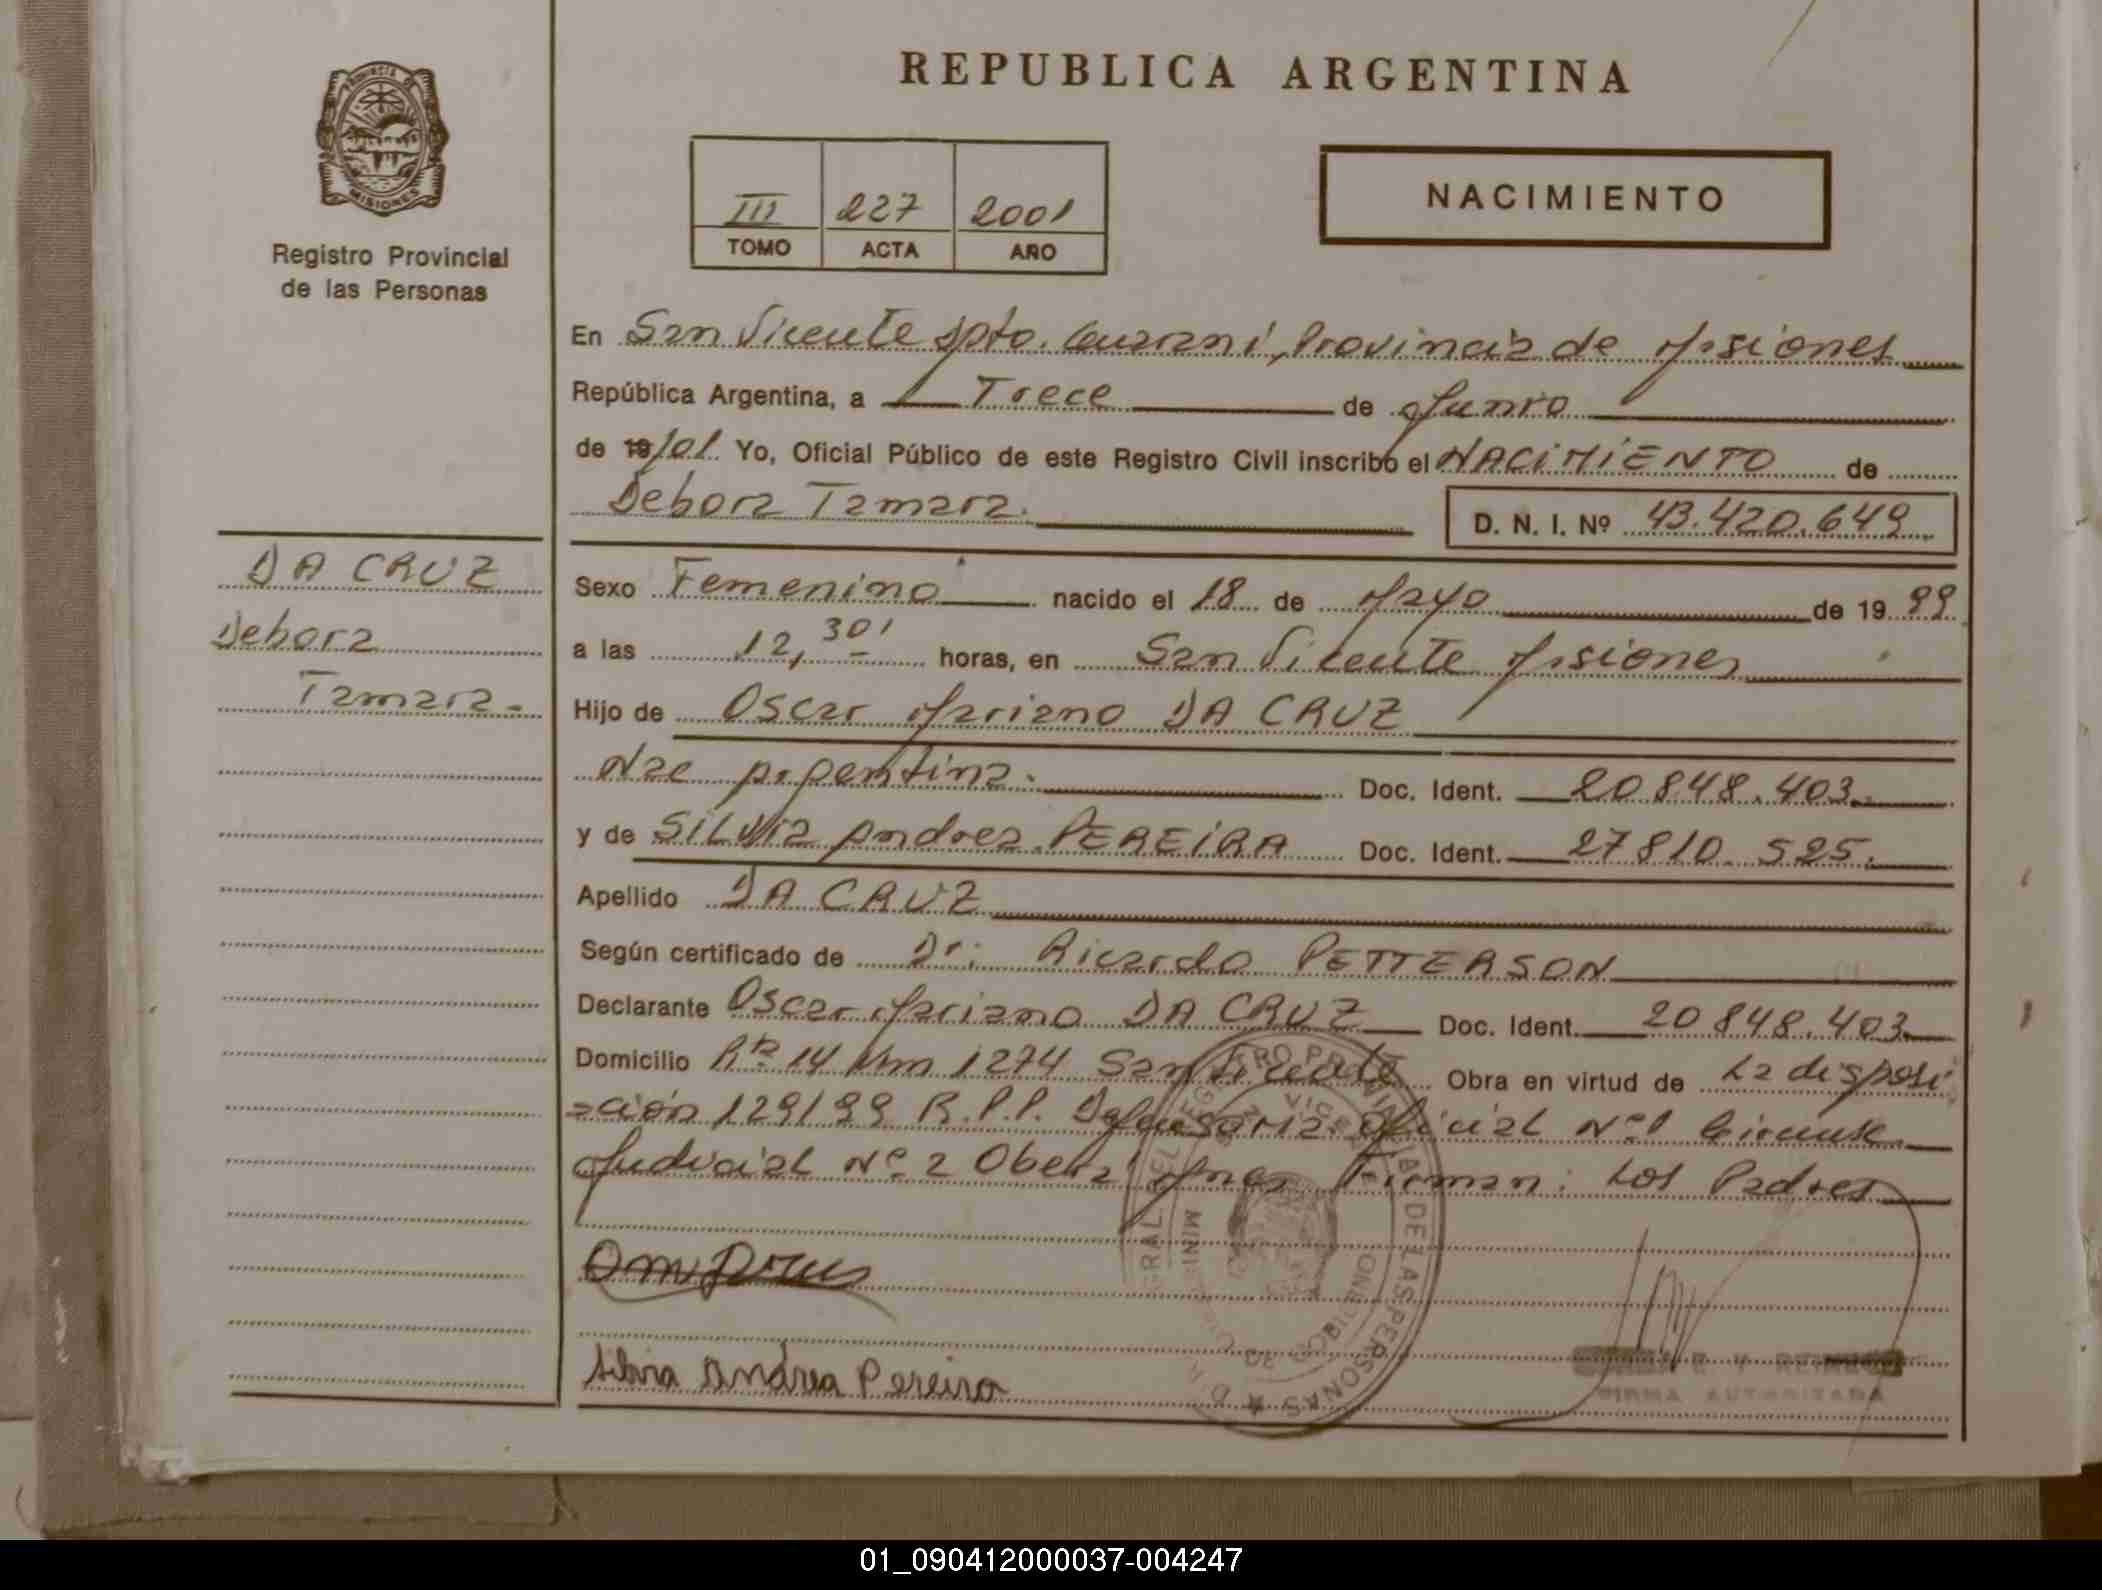 REPUBLICA ARGENTINA
PROVINCIA DE
MISIONES
Registro Provincial
de las Personas
III 227 2001
TOMO ACTA AÑO
NACIMIENTO
En San Vicente Dpto. Guaraní, Provincia de Misiones
República Argentina, a Trece de Junio
de 19/01. Yo, Oficial Público de este Registro Civil inscribo el NACIMIENTO de
Debora Tamara.
D. N. I. Nº 43.420.649
DA CRUZ
Debora
Tamara.
Sexo Femenino nacido el 18 de Mayo de 1999
a las 12,30' horas, en San Vicente Misiones
Hijo de Oscar Mariano DA CRUZ
Nac Argentina. Doc. Ident. 20848.403.
y de SILVIA Andrea PEREIRA Doc. Ident. 27810.525.
Apellido DA CRUZ
Según certificado de Dr: Ricardo PETTERSON
Declarante Oscar Mariano DA CRUZ Doc. Ident. 20848.403.
Domicilio Rta 14 Km 1274 San Vicente Obra en virtud de La disposi
=ción 129/99 R.P.P. Defensoria Oficial Nº1 Circunsc.
Judicial Nº 2 Obera' Mnes Firman: Los Padres
Silvia Andrea Pereira
FIRMA AUTORIZADA
01_090412000037-004247